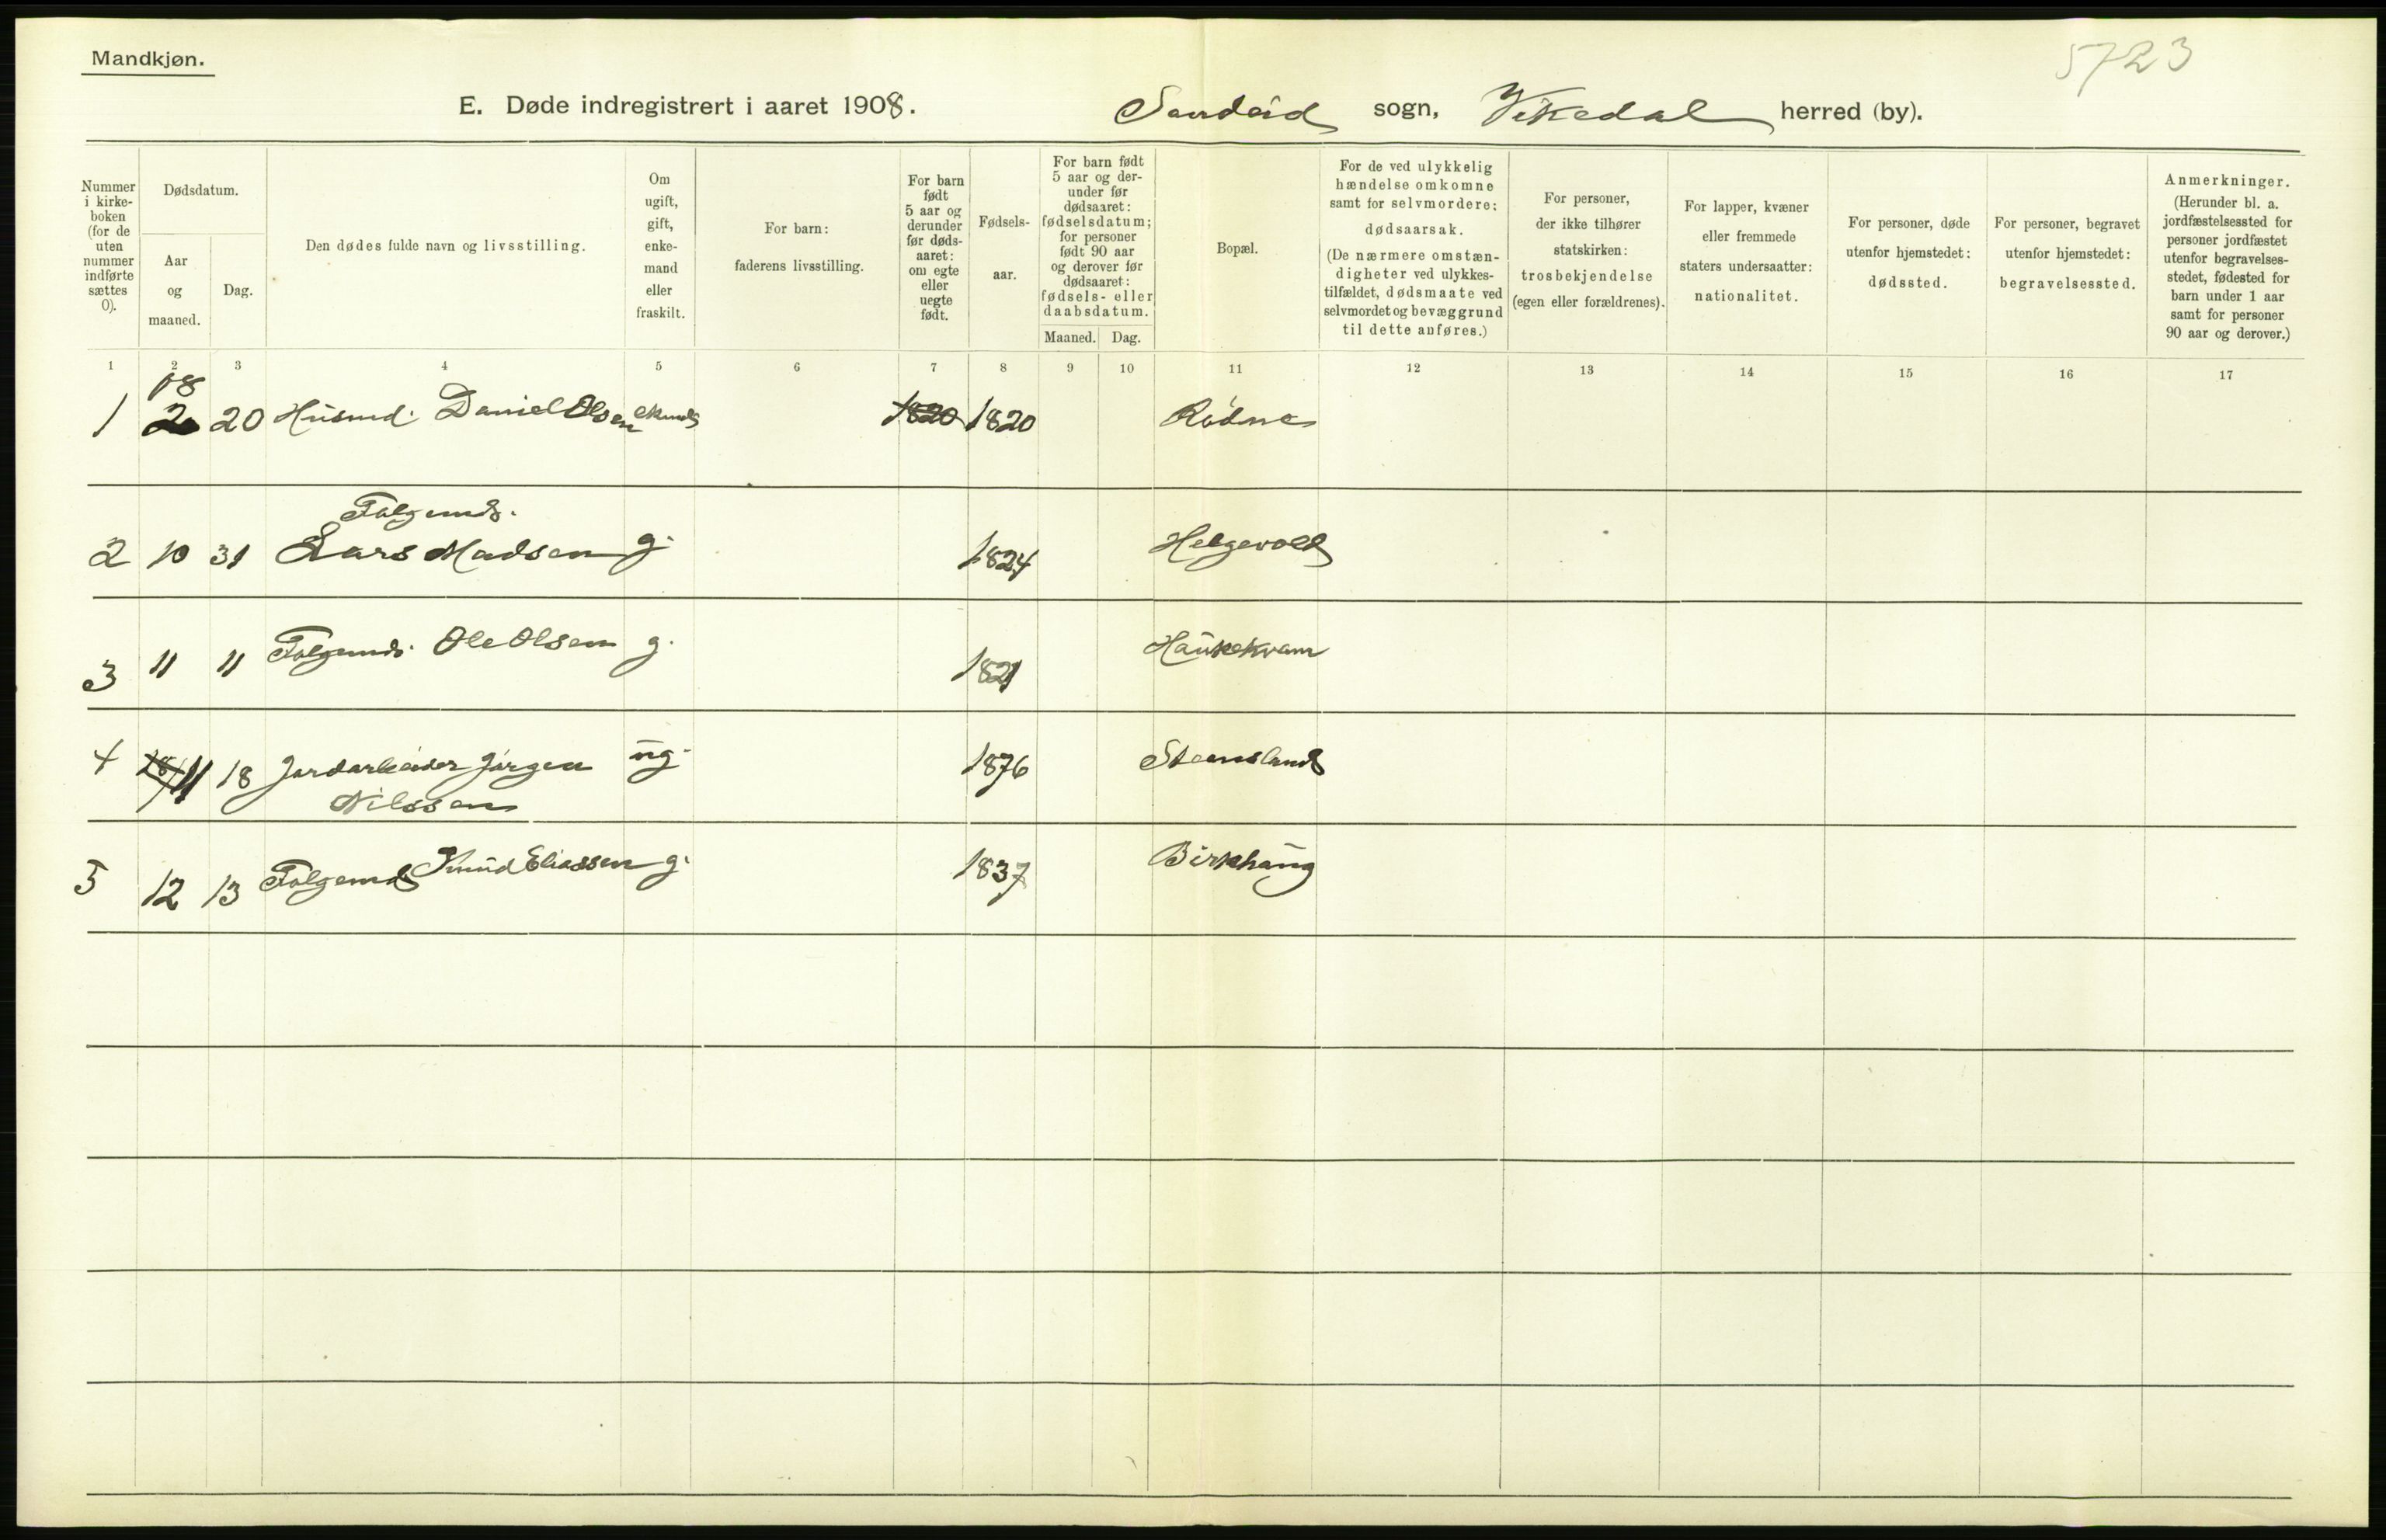 Mandkjøn.
5723
E. Døde indregistrert i aaret 1908. Sandeid sogn, Vikedal herred (by).
Nummer i kirke-boken (for de uten nummer indførte sættes 0).
Dødsdatum.
Aar og maaned.
Dag.
Den dødes fulde navn og livsstilling.
Om ugift, gift, enke-mand eller fraskilt.
For barn: faderens livsstilling.
For barn født 5 aar og derunder før døds-aaret: om egte eller uegte født.
Fødsels-aar.
For barn født 5 aar og der-under før dødsaaret: fødselsdatum; for personer født 90 aar og derover før dødsaaret: fødsels- eller daabsdatum.
Maaned. Dag.
Bopæl.
For de ved ulykkelig hændelse omkomne samt for selvmordere: dødsaarsak. (De nærmere omstæn-digheter ved ulykkes-tilfældet, dødsmaate ved selvmordet og bevæggrund til dette anføres.)
For personer, der ikke tilhører statskirken: trosbekjendelse (egen eller forældrenes).
For lapper, kvæner eller fremmede staters undersaatter: nationalitet.
For personer, døde utenfor hjemstedet: dødssted.
For personer, begravet utenfor hjemstedet: begravelsessted.
Anmerkninger. (Herunder bl. a. jordfæstelsessted for personer jordfæstet utenfor begravelses-stedet, fødested for barn under 1 aar samt for personer 90 aar og derover.)
1 2 3 4 5 6 7 8 9 10 11 12 13 14 15 16 17
08
1 2 20 Husmd. Daniel Olsen 1820 1820 Rødne
Følgemd.
2 10 31 Lars Madsen g. 1824 Helgevold
3 11 11 Følgemd. Ole Olsen g. 1821 Haukekvam
4 18/11 18 Jordarbeider Jørgen ug. 1876 Stemsland
Nilssen
5 12 13 Følgemd Knud Eliassen g. 1837 Birkhaug